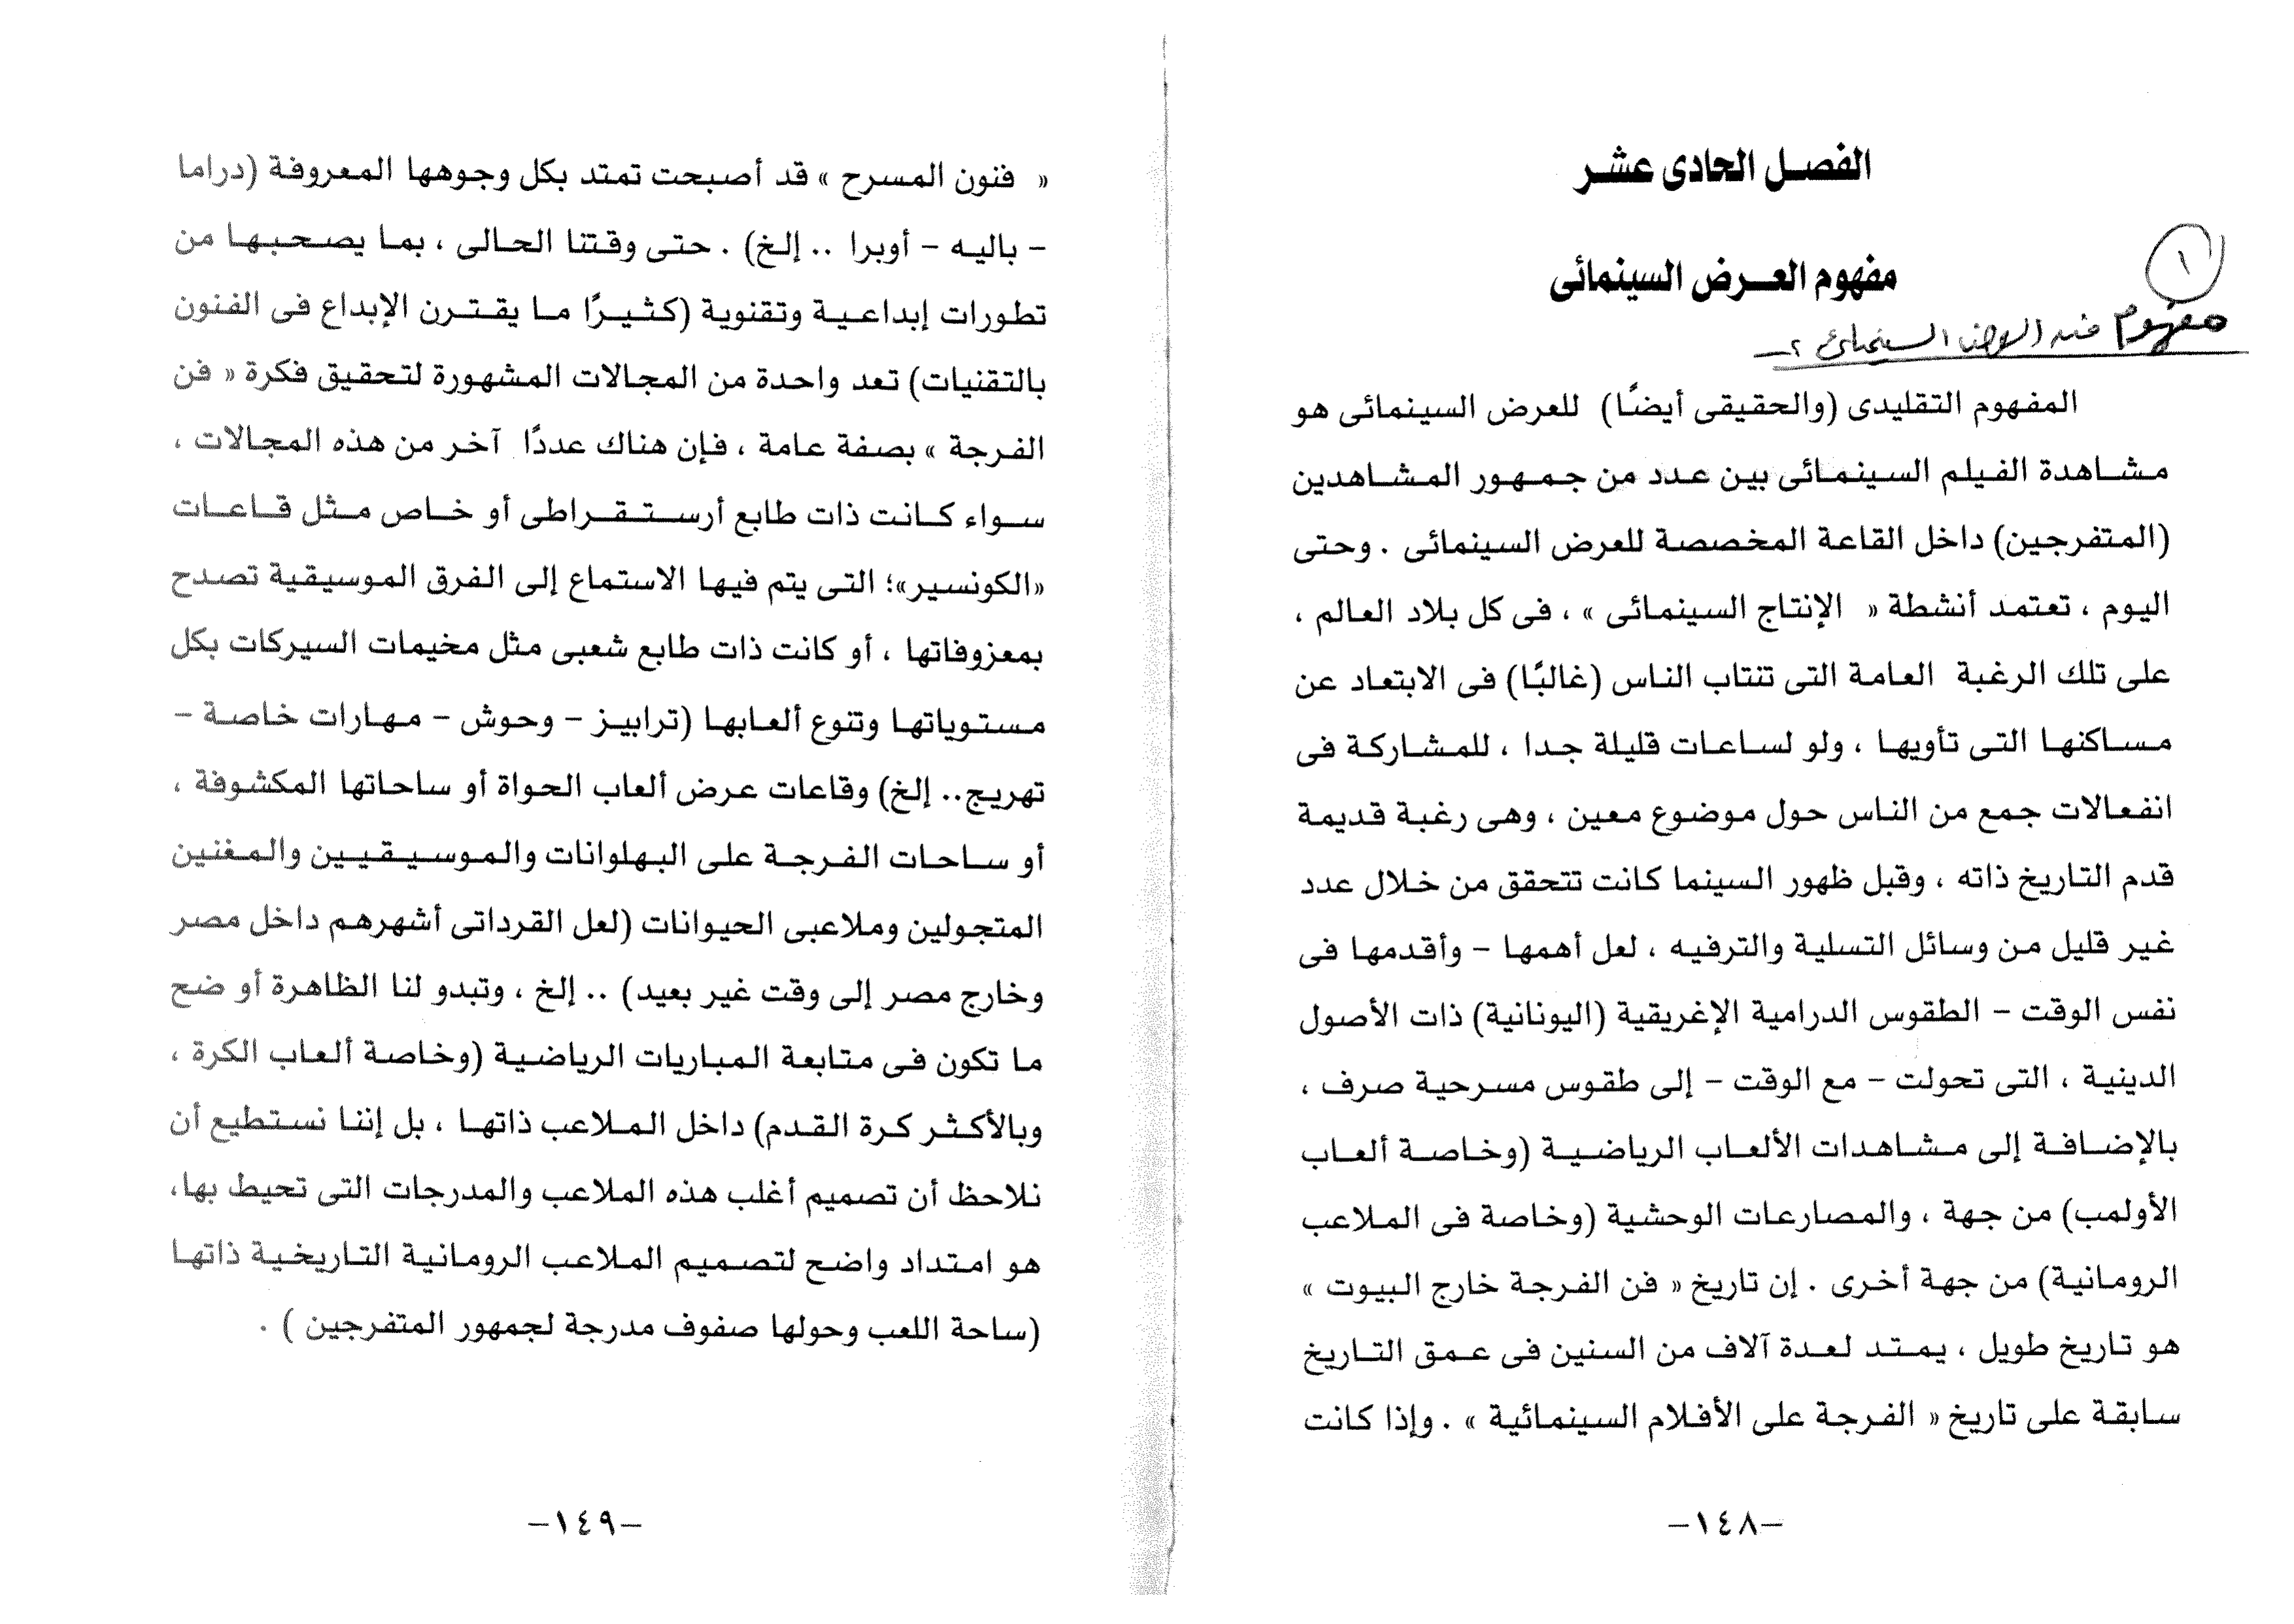 الفصل الحادى عشر
مفهوم العرض السينمائى
١
مفهوم السينمائى
المفهوم التقليدى (والحقيقى أيضًا) للعرض السينمائى هو
مشاهدة الفيلم السينمائى بين عدد من جمهور المشاهدين
(المتفرجين) داخل القاعة المخصصة للعرض السينمائى . وحتى
اليوم ، تعتمد أنشطة « الإنتاج السينمائى » ، فى كل بلاد العالم ،
على تلك الرغبة العامة التى تنتاب الناس (غالبًا) فى الابتعاد عن
مساكنها التى تأويها ، ولو لساعات قليلة جدا ، للمشاركة فى
انفعالات جمع من الناس حول موضوع معين ، وهى رغبة قديمة
قدم التاريخ ذاته ، وقبل ظهور السينما كانت تتحقق من خلال عدد
غير قليل من وسائل التسلية والترفيه ، لعل أهمها – وأقدمها فى
نفس الوقت – الطقوس الدرامية الإغريقية (اليونانية) ذات الأصول
الدينية ، التى تحولت – مع الوقت – إلى طقوس مسرحية صرف ،
بالإضافة إلى مشاهدات الألعاب الرياضية (وخاصة ألعاب
الأولمب) من جهة ، والمصارعات الوحشية (وخاصة فى الملاعب
الرومانية) من جهة أخرى . إن تاريخ « فن الفرجة خارج البيوت »
هو تاريخ طويل ، يمتد لعدة آلاف من السنين فى عمق التاريخ
سابقة على تاريخ « الفرجة على الأفلام السينمائية » . وإذا كانت
–١٤٨–
« فنون المسرح » قد أصبحت تمتد بكل وجوهها المعروفة (دراما
– باليه – أوبرا .. إلخ) . حتى وقتنا الحالى ، بما يصحبها من
تطورات إبداعية وتقنوية (كثيرًا ما يقترن الإبداع فى الفنون
بالتقنيات) تعد واحدة من المجالات المشهورة لتحقيق فكرة « فن
الفرجة » بصفة عامة ، فإن هناك عددًا آخر من هذه المجالات ،
سواء كانت ذات طابع أرستقراطى أو خاص مثل قاعات
«الكونسير»؛ التى يتم فيها الاستماع إلى الفرق الموسيقية تصدح
بمعزوفاتها ، أو كانت ذات طابع شعبى مثل مخيمات السيركات بكل
مستوياتها وتنوع ألعابها (ترابيز – وحوش – مهارات خاصة –
تهريج.. إلخ) وقاعات عرض ألعاب الحواة أو ساحاتها المكشوفة ،
أو ساحات الفرجة على البهلوانات والموسيقيين والمغنين
المتجولين وملاعبى الحيوانات (لعل القرداتى أشهرهم داخل مصر
وخارج مصر إلى وقت غير بعيد) .. إلخ ، وتبدو لنا الظاهرة أو ضح
ما تكون فى متابعة المباريات الرياضية (وخاصة ألعاب الكرة ،
وبالأكثر كرة القدم) داخل الملاعب ذاتها ، بل إننا نستطيع أن
نلاحظ أن تصميم أغلب هذه الملاعب والمدرجات التى تحيط بها،
هو امتداد واضح لتصميم الملاعب الرومانية التاريخية ذاتها
(ساحة اللعب وحولها صفوف مدرجة لجمهور المتفرجين ) .
–١٤٩–